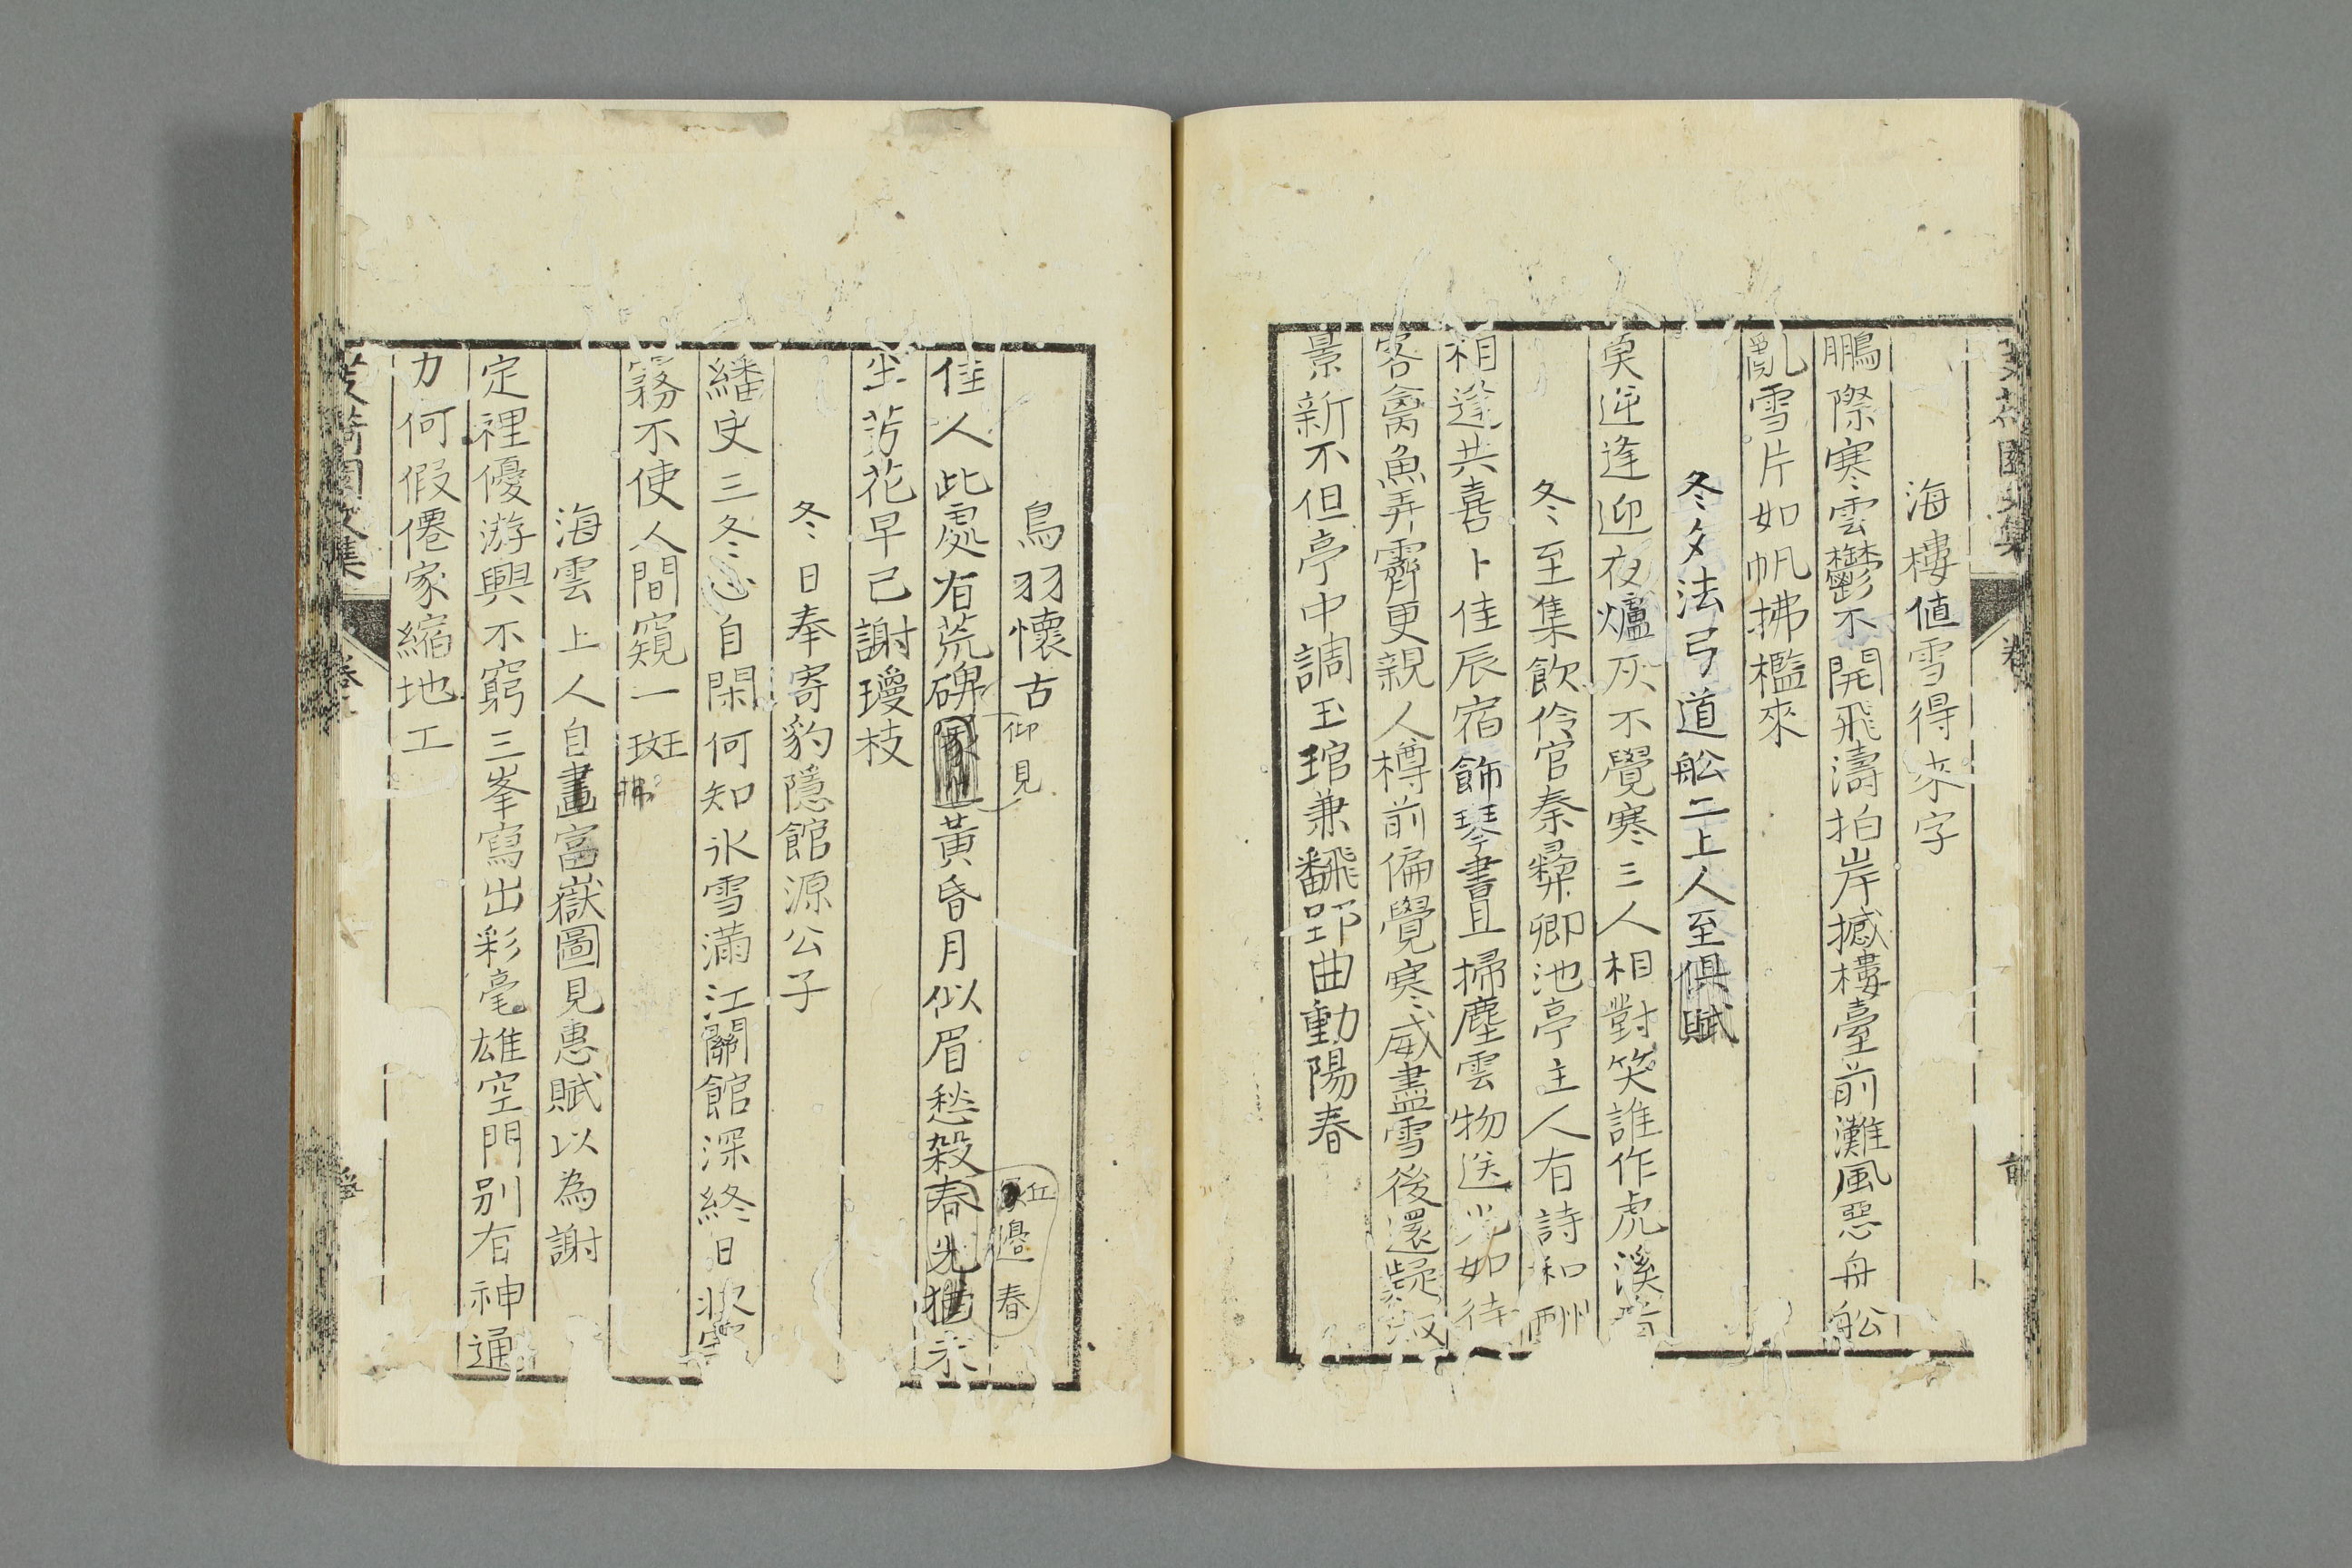 海樓値雪得來字
鵬際寒雲鬱不開飛濤拍岸撼樓臺前灘風惡舟舩
亂雪片如帆拂檻來
冬夕法弓道舩二上人至俱賦
莫逆逢迎夜爐灰不覺寒三人相對笑誰作虎溪
冬至集飲伶官秦彛卿池亭主人有詩和酬
相逢共喜卜佳辰宿飭琴書且掃塵雲物送 如待
客禽魚弄霽更親人樽前偏覺寒威盡雪後還疑淑
景新不但亭中調玉琯兼飜郢曲動陽春
鳥羽懷古
仰見
丘 邊春
佳人此處有荒碑 黃昏月似眉愁殺春光猶未
芳花早已謝璦枝
冬日奉寄豹隱館源公子
繙史三冬 自閑何知氷雪滿江關館深終日
霧不使人間窺一斑
海雲上人自畫富嶽圖見惠賦以為謝
定裡優游興不窮三峯寫出彩毫雄空門別有神通
力何假僊家縮地工